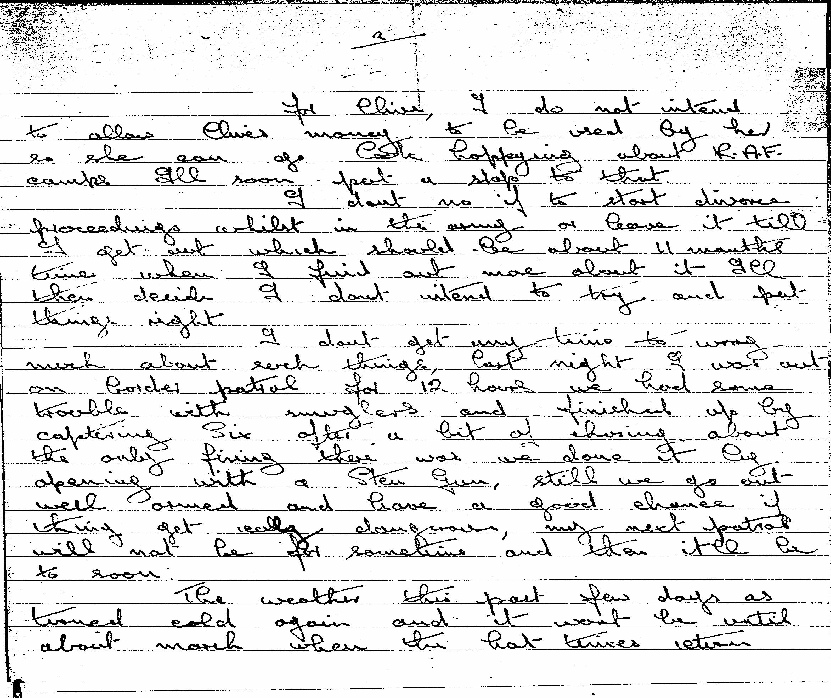 2
for Clive, I do not intend
to allow Clives money to be used by her
so she can go hoppying about R.A.F.
camps Ill soon put a stop to that
I dont no if to start divorce
proceedings whilst in the army or leave it till
I get out which should be about 11 months
time when I find out more about it Ill
then decide I dont intend to try and put
things right
I dont get any time to worry
much about such things, last night I was out
on border patrol for 12 hours we had some
trouble with smuglers and finished up by
captering Six after a bit of chasing about
the only firing there was we done it by
opening with a Sten Gun, still we go out
well armed and have a good chance if
thing get really dangerous, my next patrol
will not be for sometime and then it'll be
to soon
The weather this past few days as
turned cold again and it wont be until
about march when the hot times return